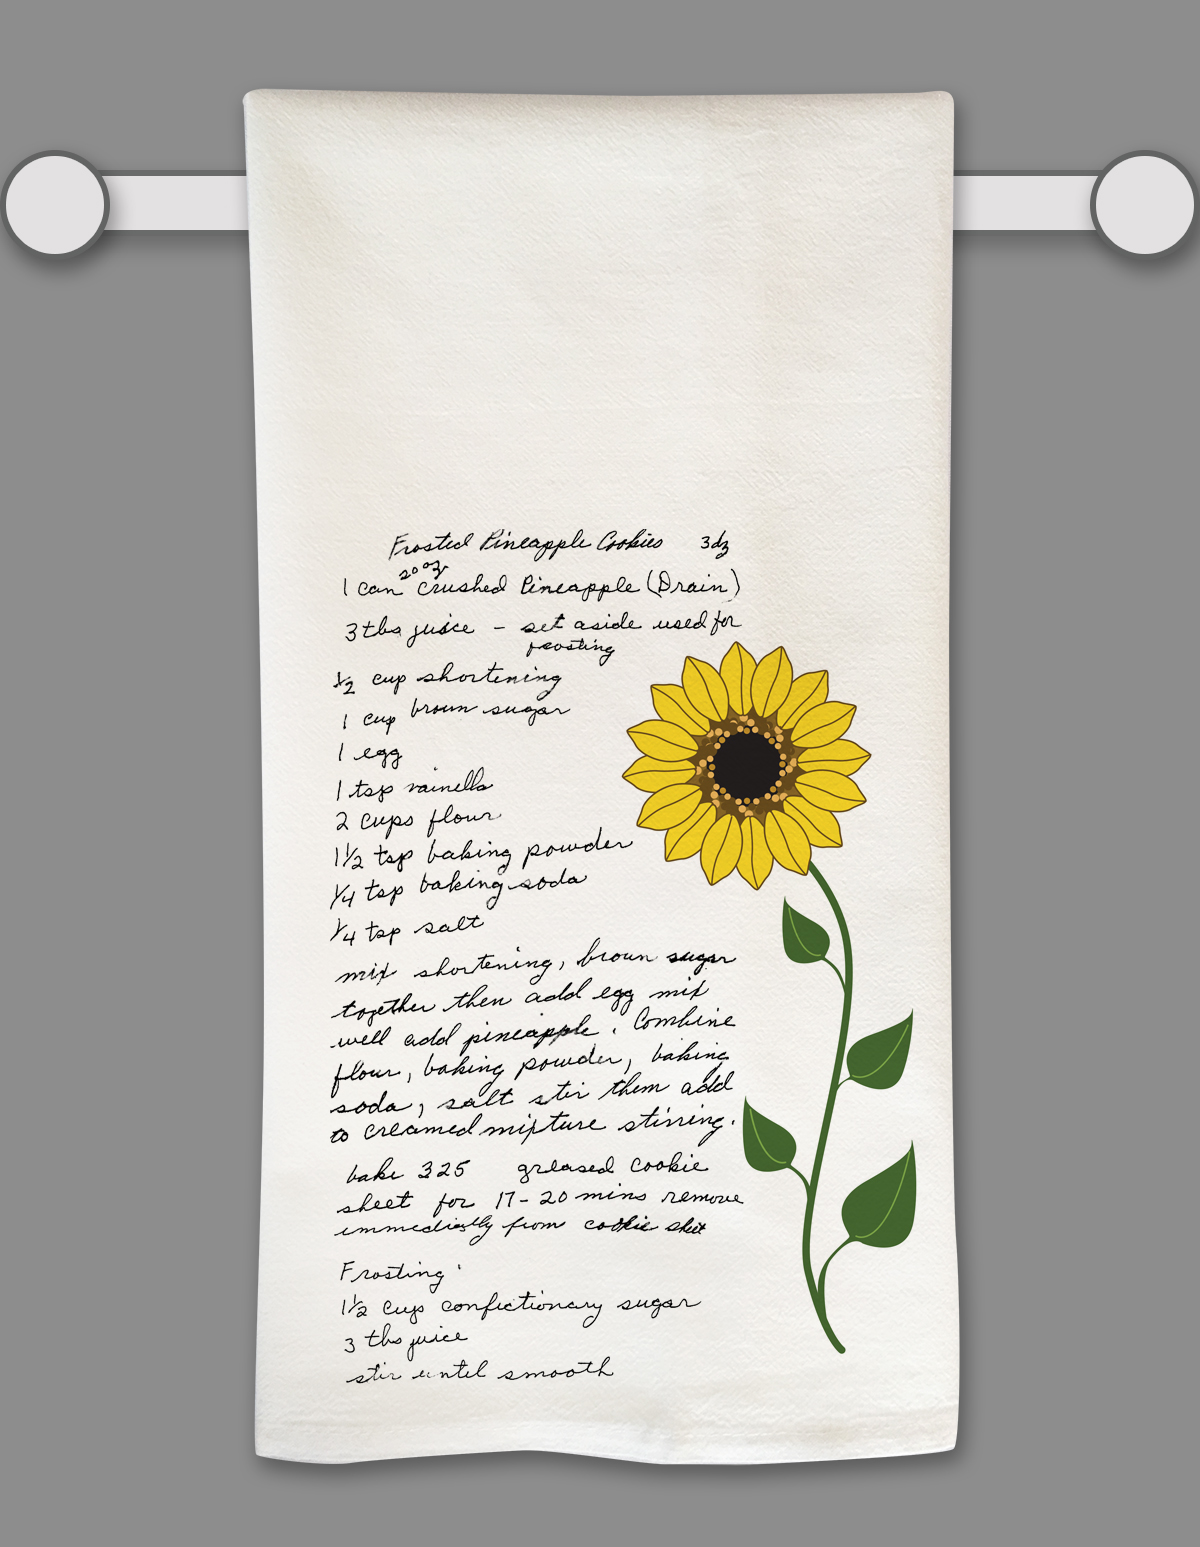 Frosted Pineapple Cookies 3dz
20oz
1 can crushed Pineapple (Drain)
3 tbs juice - set aside used for
frosting
1/2 cup shortening
1 cup broun sugar
1 egg
1 tsp vainella
2 cups flour
1 1/2 tsp baking powder
1/4 tsp baking soda
1/4 tsp salt
mix shortening, broun sugar
together then add egg mix
well add pineapple. Combine
flour, baking powder, baking
soda, salt stir them add
to creamed mixture stirring.
bake 325 greased cookie
sheet for 17-20 mins remove
immediatly from cookie sheet
Frosting
1 1/2 cup confectionary sugar
3 tbs juice
stir until smooth